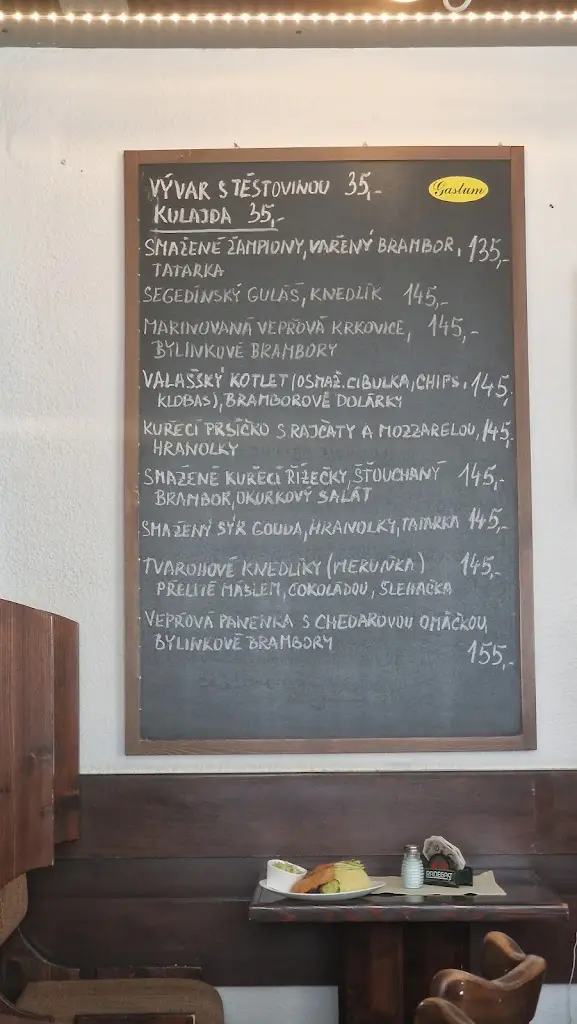 VÝVAR S TĚSTOVINOU 35,-
Gastum
KULAJDA 35,-
SMAŽENÉ ŽAMPIONY, VAŘENÝ BRAMBOR, 135,-
TATARKA
SEGEDÍNSKÝ GULÁŠ, KNEDLÍK 145,-
MARINOVANÁ VEPŘOVÁ KRKOVICE, 145,-
BYLINKOVÉ BRAMBORY
VALAŠSKÝ KOTLET (OSMAŽ. CIBULKA, CHIPS, 145,
KLOBÁS), BRAMBOROVÉ DOLÁRKY
KUŘECÍ PRSÍČKO S RAJČATY A MOZZARELOU, 145,-
HRANOLKY
SMAŽENÉ KUŘECÍ ŘÍZEČKY, ŠŤOUCHANÝ 145,-
BRAMBOR, OKURKOVÝ SALÁT
SMAŽENÝ SÝR GOUDA, HRANOLKY, TATARKA 145,-
TVAROHOVÉ KNEDLÍKY (MERUŇKA) 145,-
PŘELITÉ MÁSLEM, ČOKOLÁDOU, ŠLEHAČKA
VEPŘOVÁ PANENKA S CHEDAROVOU OMÁČKOU,
BYLINKOVÉ BRAMBORY
155,-